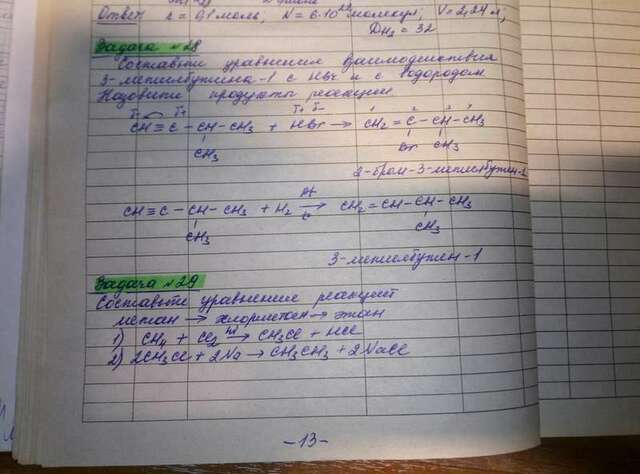 Ответ: λ = 0,1 моль; N = 6·10²² молекул; V = 2,24 л;
D H₂ = 32
Задача №28
Составьте уравнения взаимодействия
3-метилбутина-1 с HBr и с водородом
Назовите продукты реакции
δ- δ+ δ+ δ- 1 2 3 4
CH≡C – CH – CH₃ + HBr → CH₂ = C – CH – CH₃
CH₃ Br CH₃
2-бром-3-метилбутен-1
CH≡C – CH – CH₃ + H₂ → CH₂ = CH – CH – CH₃
CH₃ CH₃
3-метилбутен-1
Задача №29
Составьте уравнения реакций
метан → хлорметан → этан
1) CH₄ + Cl₂ hν→ CH₃Cl + HCl
2) 2CH₃Cl + 2Na → CH₃CH₃ + 2NaCl
-13-